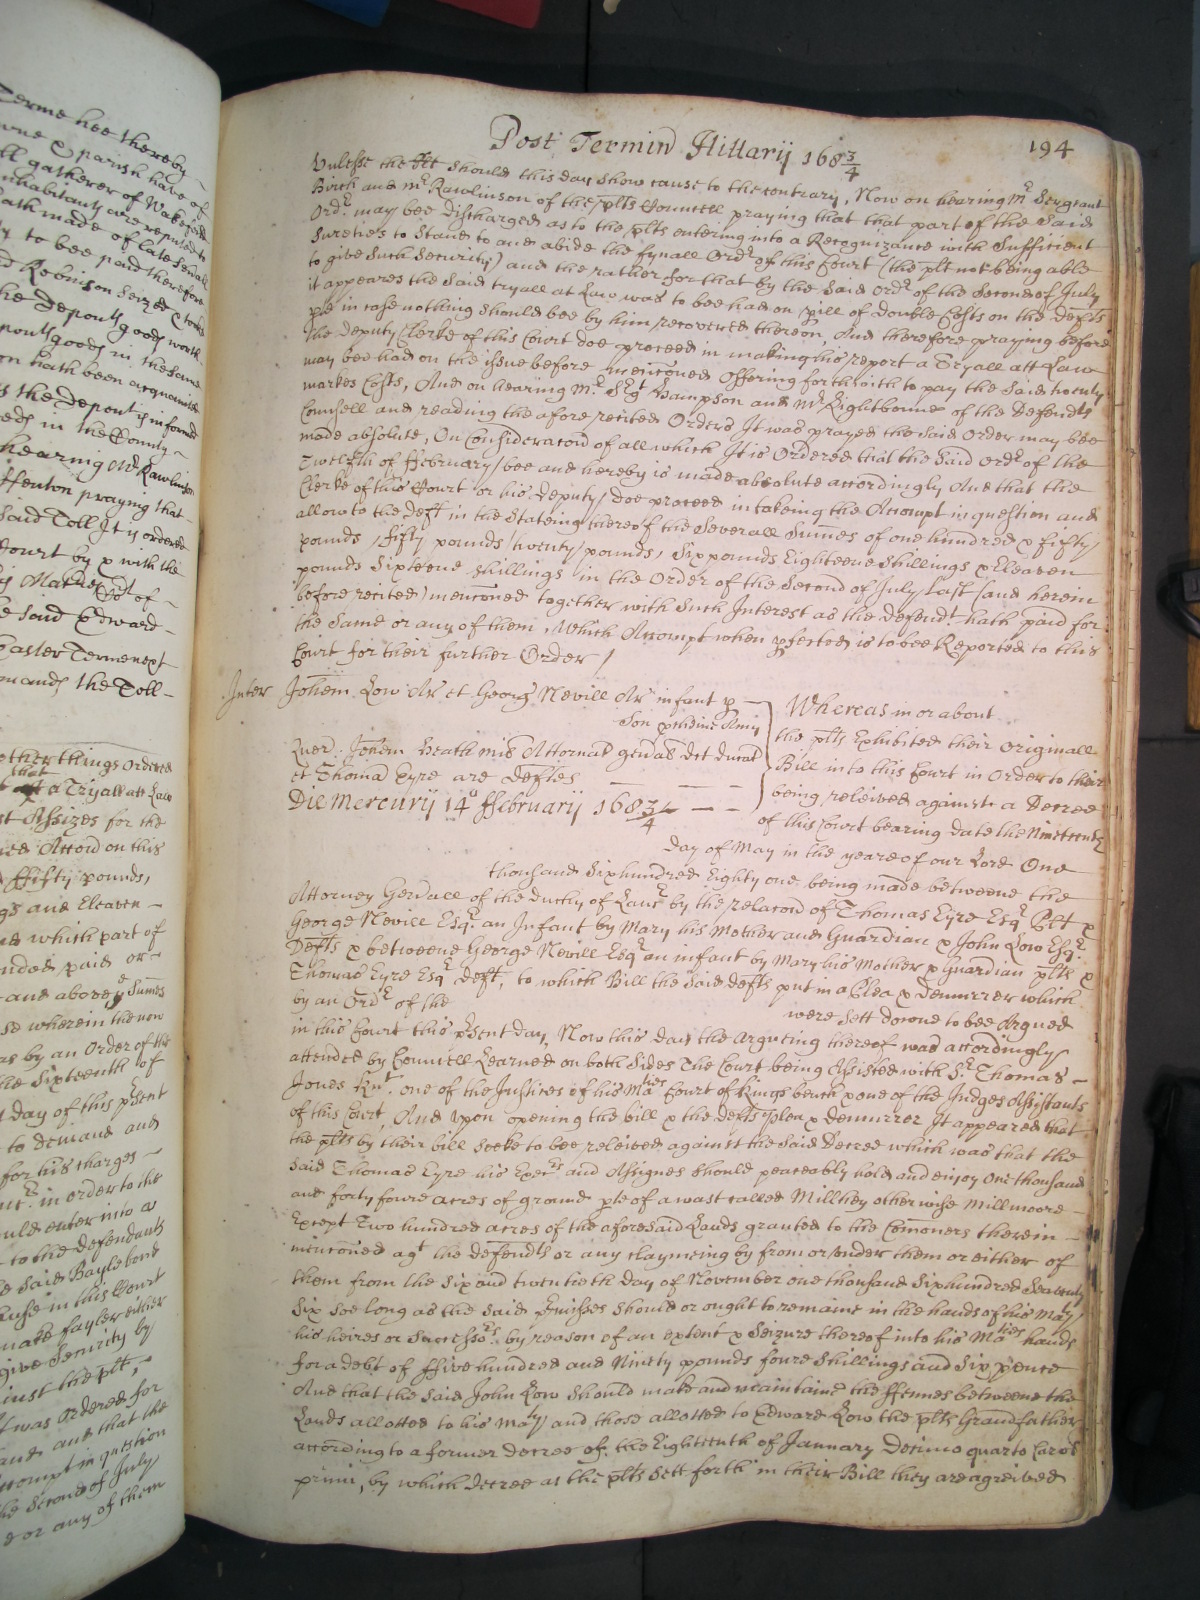 Terme hee thereby
owne & parish have of
ll gatherer of Wakefeild
nhabitants are reputed to
ath made of late severall
y to bee paid therefore
d Robinson Seized & tooke
he Deponts goods worth
ponts goods in the same
on hath been acquainted
s the Depont is informed
eeds in the County
hearing Mr Rawlinson
Henton praying that
said Toll It is ordered
Court by & with the
of
e said Edward
Easter Terme next
mands the Toll
other things Ordered
that
a Tryall att Law
st Assizes for the
Accord on this
ffifty pounds,
gs and Eleaven
ed which part of
nded paid or
and above ye Sumes
se wherein the now
as by an Order of the
he Sixteenth of
day of this psent
to demand and
for his Charges
in order to the
uld enter into a
to the defendants
e said Bayle bond
ause in this Court
make fayler either
give Security by
inst the plt,
t was Ordered for
and that the
Accompt in question
the Second of July
d or any of them
Post Termin Hillarij 168¾
194
Unlesse the plt should this day show cause to the contrary, Now on hearing Mr Sergeant
Birch and Mr Rawlinson of the plts Councell praying that that part of the said
Ordr may bee discharged as to the plts entering into a Recognizance with Sufficient
Sureties to stand to and abide the fynall Ordr of this Court (the plt not being able
to give such Security) and the rather for that by the said Ordr of the Second of July
it appeares the said tryall at Law was to bee had on pill of double Costs on the Defts
pte in case nothing should bee by him recovered thereon, And therefore praying before
the deputy Clerke of this Court doe proceed in making his report a Tryall att Law
may bee had on the issue before menconed Offering forthwith to pay the said twenty
markes Costs, And on hearing Mr Sergt Hampson and Mr Lightbourne of the Defendts
Councell and reading the afore recited Orders It was prayed the said Order may bee
made absolute, On Consideracon of all which It is Ordered that the said Ordr of the
Twelfth of ffebruary bee and hereby is made absolute accordingly And that the
Clerke of this Court or his deputy doe proceed in takeing the Accompt in question and
allow to the Deft in the Stateing thereof the severall Summes of one hundred & fifty
pounds, fifty pounds twenty pounds, Six pounds Eighteene shillings & Eleaven
pounds Sixteene shillings in the Order of the Second of July last (and herein
before recited) menconed together with such Interest as the Defendt hath paid for
the same or any of them, Which Accompt when pfected is to bee Reported to this
Court for their further Order /
Inter Johem Low Ar et George Nevill Ar infant p
Quer. Johem Heath mil Attornat genal Dct Ducat
et Thoma Eyre Ar Deftes
Die Mercurij 14o ffebruarij 168¾
Whereas in or about
the plts Exhibited their Originall
Bill into this Court in Order to their
being releived against a Decree
of this Court bearing date the Nineteenth
day of May in the yeare of our Lord One
thousand Sixhundred Eighty one being made betweene the
Attorney Genrall of the Duchy of Lancr by the relacon of Thomas Eyre Esqr Plt &
George Nevill Esqr an Infant by Mary his Mother and Guardian & John Low Esqr
Defts & betweene George Nevill Esqr an infant by Mary his Mother & Guardian plts &
Thomas Eyre Esqr Deft, to which Bill the said Defts put in a Plea & Demurrer which
by an Ordr of the were sett downe to bee Argued
in this Court this psent day, Now this day the Argueing thereof was accordingly
attended by Councell Learned on both sides The Court being Assisted with Sr Thomas
Jones Knt one of the Justices of his Maties Court of Kings bench & one of the Judges Assistants
of this Court, And upon opening the bill & the Defts plea & demurrer It appeared that
the plts by their bill seeke to bee releived against the said Decree which was that the
said Thomas Eyre his Exers and Assignes should peaceably hold and enjoy One thousand
and forty foure acres of ground pte of a wast called Millhey otherwise Millmoore
Except Two hundred acres of the aforesaid Lands granted to the Comoners therein
menconed agt the defendts or any claymeing by from or under them or either of
them from the six and twentieth day of November one thousand Sixhundred Seaventy
Six soe long as the said pmisses should or ought to remaine in the hands of his Maty
his heires or Successors by reason of an extent & Seizure thereof into his Maties hands
for a debt of ffive hundred and Ninety pounds foure shillings and six pence
And that the said John Low should make and maintaine the ffences betweene the
Lands allotted to his Maty and those allotted to Edward Low the plts Grandfather
according to a former Decree of the Eighteenth of January Decimo quarto Caroli
primi, by which decree as the plts sett forth in their Bill they are agreived